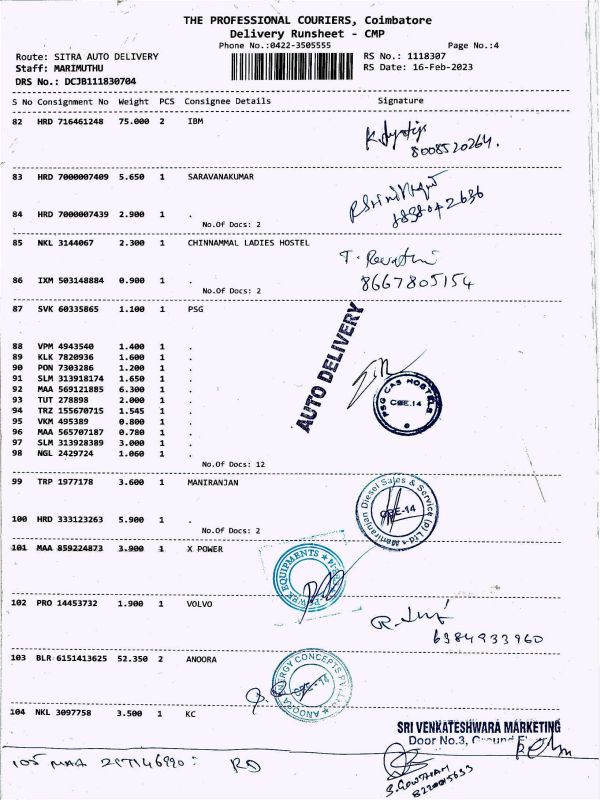 THE PROFESSIONAL COURIERS, Coimbatore
Delivery Runsheet - CMP
Phone No.:0422-3505555 Page No.:4
Route: SITRA AUTO DELIVERY RS No.: 1118307
Staff: MARIMUTHU RS Date: 16-Feb-2023
DRS No.: DCJB111830704
S No Consignment No Weight PCS Consignee Details Signature
82 HRD 716461248 75.000 2 IBM
8008520264.
83 HRD 7000007409 5.650 1 SARAVANAKUMAR
84 HRD 7000007439 2.900 1 .
No.Of Docs: 2
85 NKL 3144067 2.300 1 CHINNAMMAL LADIES HOSTEL
T. Revathi
86 IXM 503148884 0.900 1 .
8667805154
No.Of Docs: 2
87 SVK 60335865 1.100 1 PSG
AUTO DELIVERY
88 VPM 4943540 1.400 1 .
89 KLK 7820936 1.600 1 .
90 PON 7303286 1.200 1 .
91 SLM 313918174 1.650 1 .
92 MAA 569121885 6.300 1 .
93 TUT 278898 2.000 1 .
94 TRZ 155670715 1.545 1 .
95 VKM 495389 0.800 1 .
96 MAA 565707187 0.780 1 .
97 SLM 313928389 3.000 1 .
98 NGL 2429724 1.060 1 .
PSG CAS HOSTELS
CBE.14
No.Of Docs: 12
99 TRP 1977178 3.600 1 MANIRANJAN
Maniranjan Diesel Sales & Service (p) Ltd
CBE-14
100 HRD 333123263 5.900 1 .
No.Of Docs: 2
101 MAA 859224873 3.900 1 X POWER
EQUIPMENTS
102 PRO 14453732 1.900 1 VOLVO
6384933960
103 BLR 6151413625 52.350 2 ANOORA
ANOORA ENERGY CONCEPTS PVT. LTD
CBE-14
104 NKL 3097758 3.500 1 KC
SRI VENKATESHWARA MARKETING
Door No.3, Ground
105 MAA
S. Gowtham